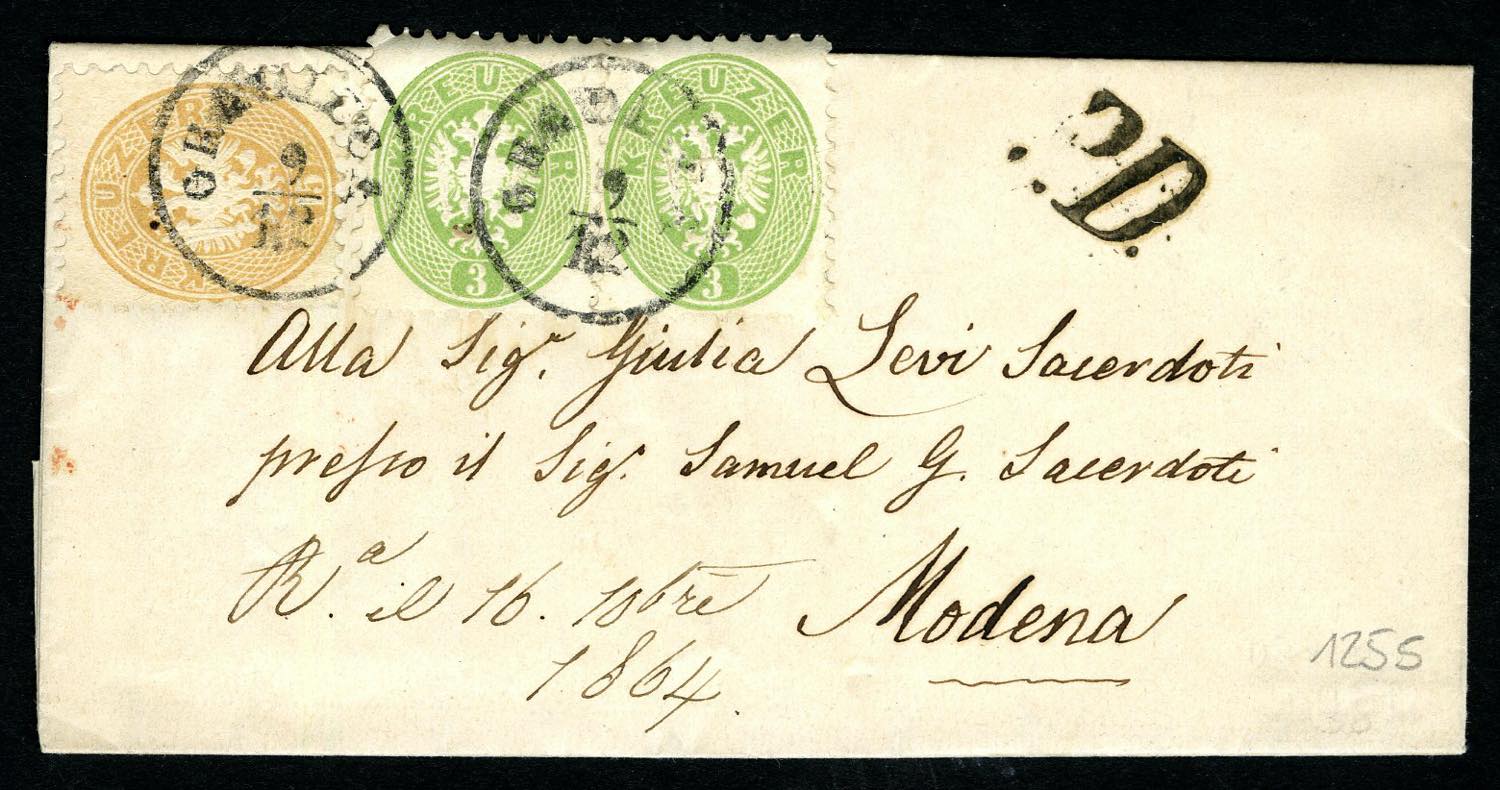 KREUZER
KREUZER 3
KREUZER 3
9
12
9
12
P.D.
Alla Sigʳ. Giulia Levi Sacerdoti
presso il Sigʳ. Samuel G. Sacerdoti
Rª. il 16. 10bre
Modena
1864.
1255